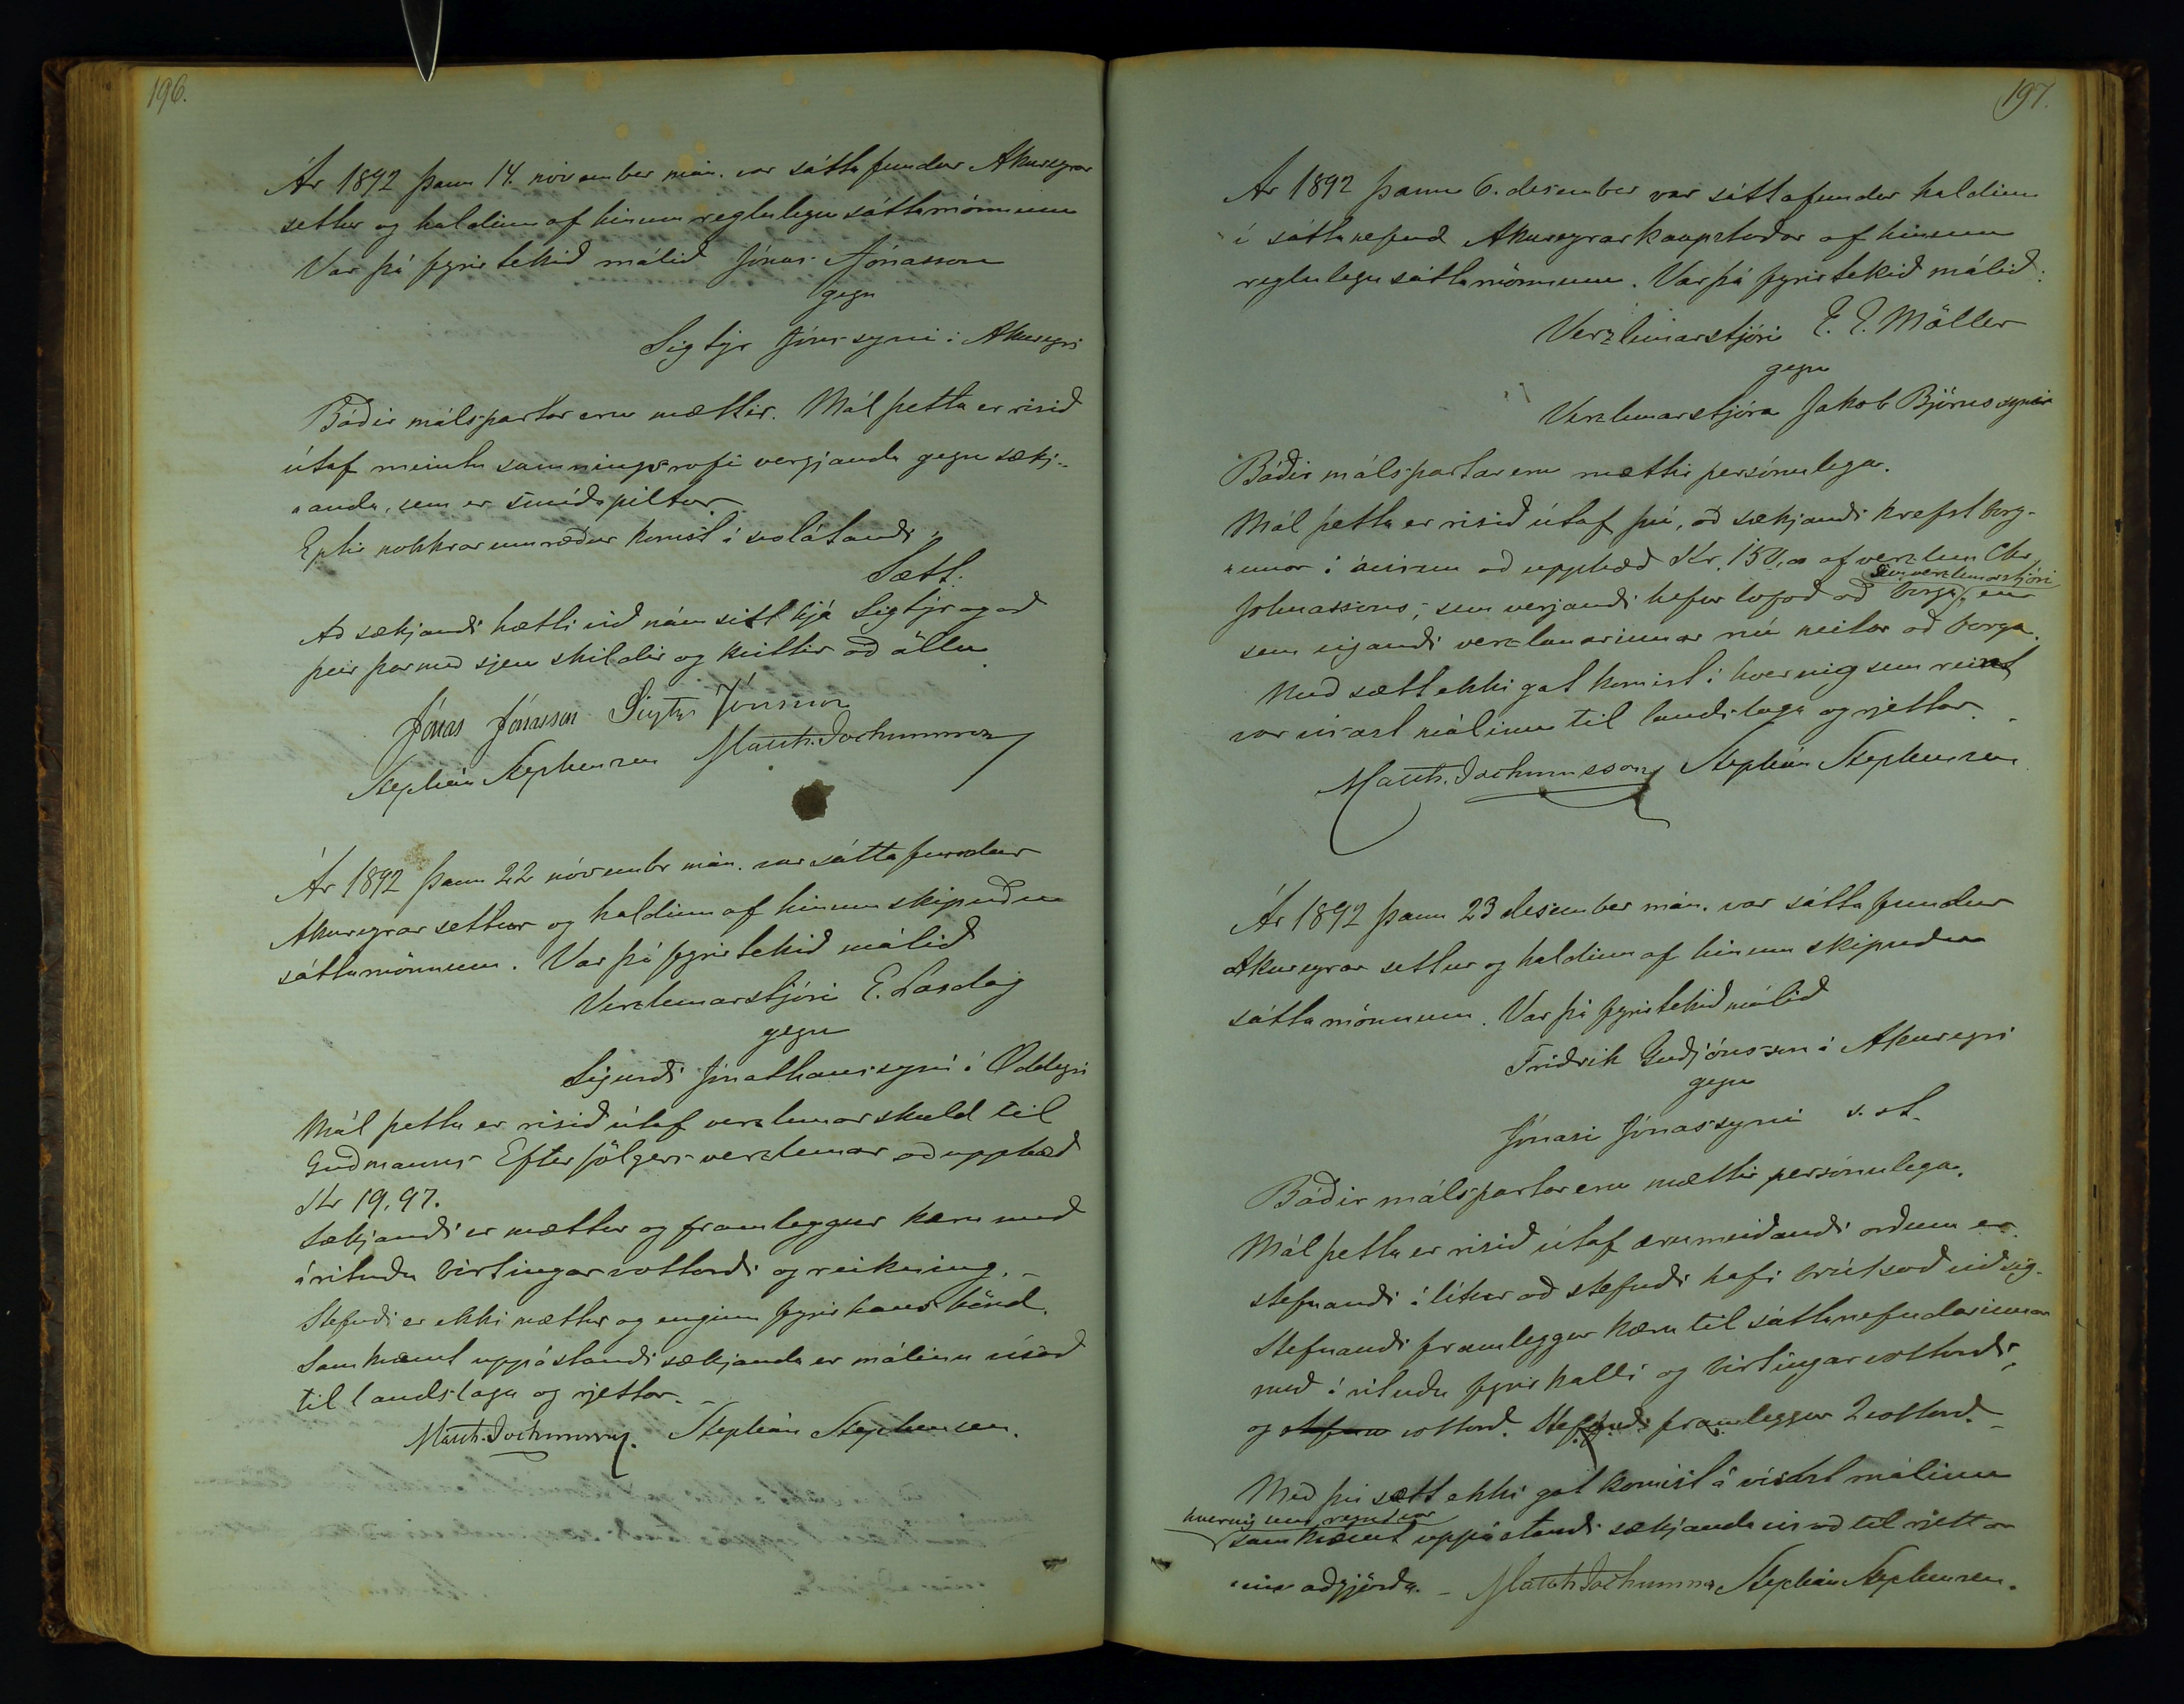 196.
Ár 1892 þann 14. november mán. var sáttafundur Akureyrar
settur og haldinn af hinum reglulegu sáttamönnum
Var þá fyrirtekið málið Jónas Jónasson
gegn
Sigtýr Jónssyni í Akureyri
Báðir málspartar eru mættir. Mál þetta er risið
útaf meintu samningsrofi verjanda gegn sækj-
anda, sem er smíðapiltur
Eptir nokkrar umræður komst í svolátandi
Sætt:
Að sækjandi hætti við nám sitt hjá Sigtýr og að
þeir þarmeð sjeu skildir og kvittir að öllu.
Jónas Jónasson Sigtr Jónsson
Stephán Stephensen Matth. Jochumsson
Ár 1892 þann 22 nóvembr mán. var sáttafundur
Akureyrar settur og haldinn af hinum skipuðu
sáttamönnum. Var þá fyrirtekið málið
Verzlunarstjóri E. Laxdag
gegn
Sigurði Jónathanssyni í Oddeyri
Mál þetta er risið útaf verzlunarskuld til
Guðmanns Efterfölgers verzlunar að upphæð
Kr 19,97.
Sækjandi er mættur og framleggur kæru með
írituðu birtingarvottorði og reikning. -
Stefndi er ekki mættur og enginn fyrir hans hönd.
Samkvæmt uppástandi sækjanda er málinu vísað
til landslaga og rjettar. -
Matth. Jochumsson. Stephán Stephensen.
197.
Ár 1892 þann 6. desember var sáttafundur haldinn
í sáttanefnd Akureyrarkaupstaðar af hinum
reglulegu sáttamönnum. Var þá fyrirtekið málið:
Verzlunarstjóri E. E. Möller
gegn
Verzlunarstjóra Jakob Björnssyni
Báðir málspartar eru mættir persónulega.
Mál þetta er risið útaf því, að sækjandi krefst borg-
unar í aurum að upphæð Kr. 150,00 af verzlun Chr
sem verzlunarstjóri
Johnassons, sem verjandi hefur lofað að borga, en
sem eigandi verzlunarinnar nú neitar að borga.
Með sætt ekki gat komist í hvernig sem reint
var vísast málinu til landslaga og rjettar. -
Matth. Jochumsson Stephán Stephensen
Ár 1892 þann 23 desember mán. var sáttafundur
Akureyrar settur og haldinn af hinum skipuðu
sáttamönnum. Var þá fyrirtekið málið
Friðrik Guðjónsson í Akureyri
gegn
Jónasi Jónassyni s. st.
Báðir málspartar eru mættir persónulega.
Mál þetta er risið útaf ærumeiðandi orðum er
stefnandi álítur að stefndi hafi brúkað við sig.
Stefnandi framleggur kæru til sáttanefndarinnar
með írituðu fyrirkalli og birtingarvottorði,
og vottorð. Stefndi framleggur 2 vottorð. -
Með því sætt ekki gat komist á vísast málinu
hvernig sem reynt var
samkvæmt uppástandi sækjanda vísað til rjettar
ins aðgjörða. - Matth Jochumss Stephán Stephensen.